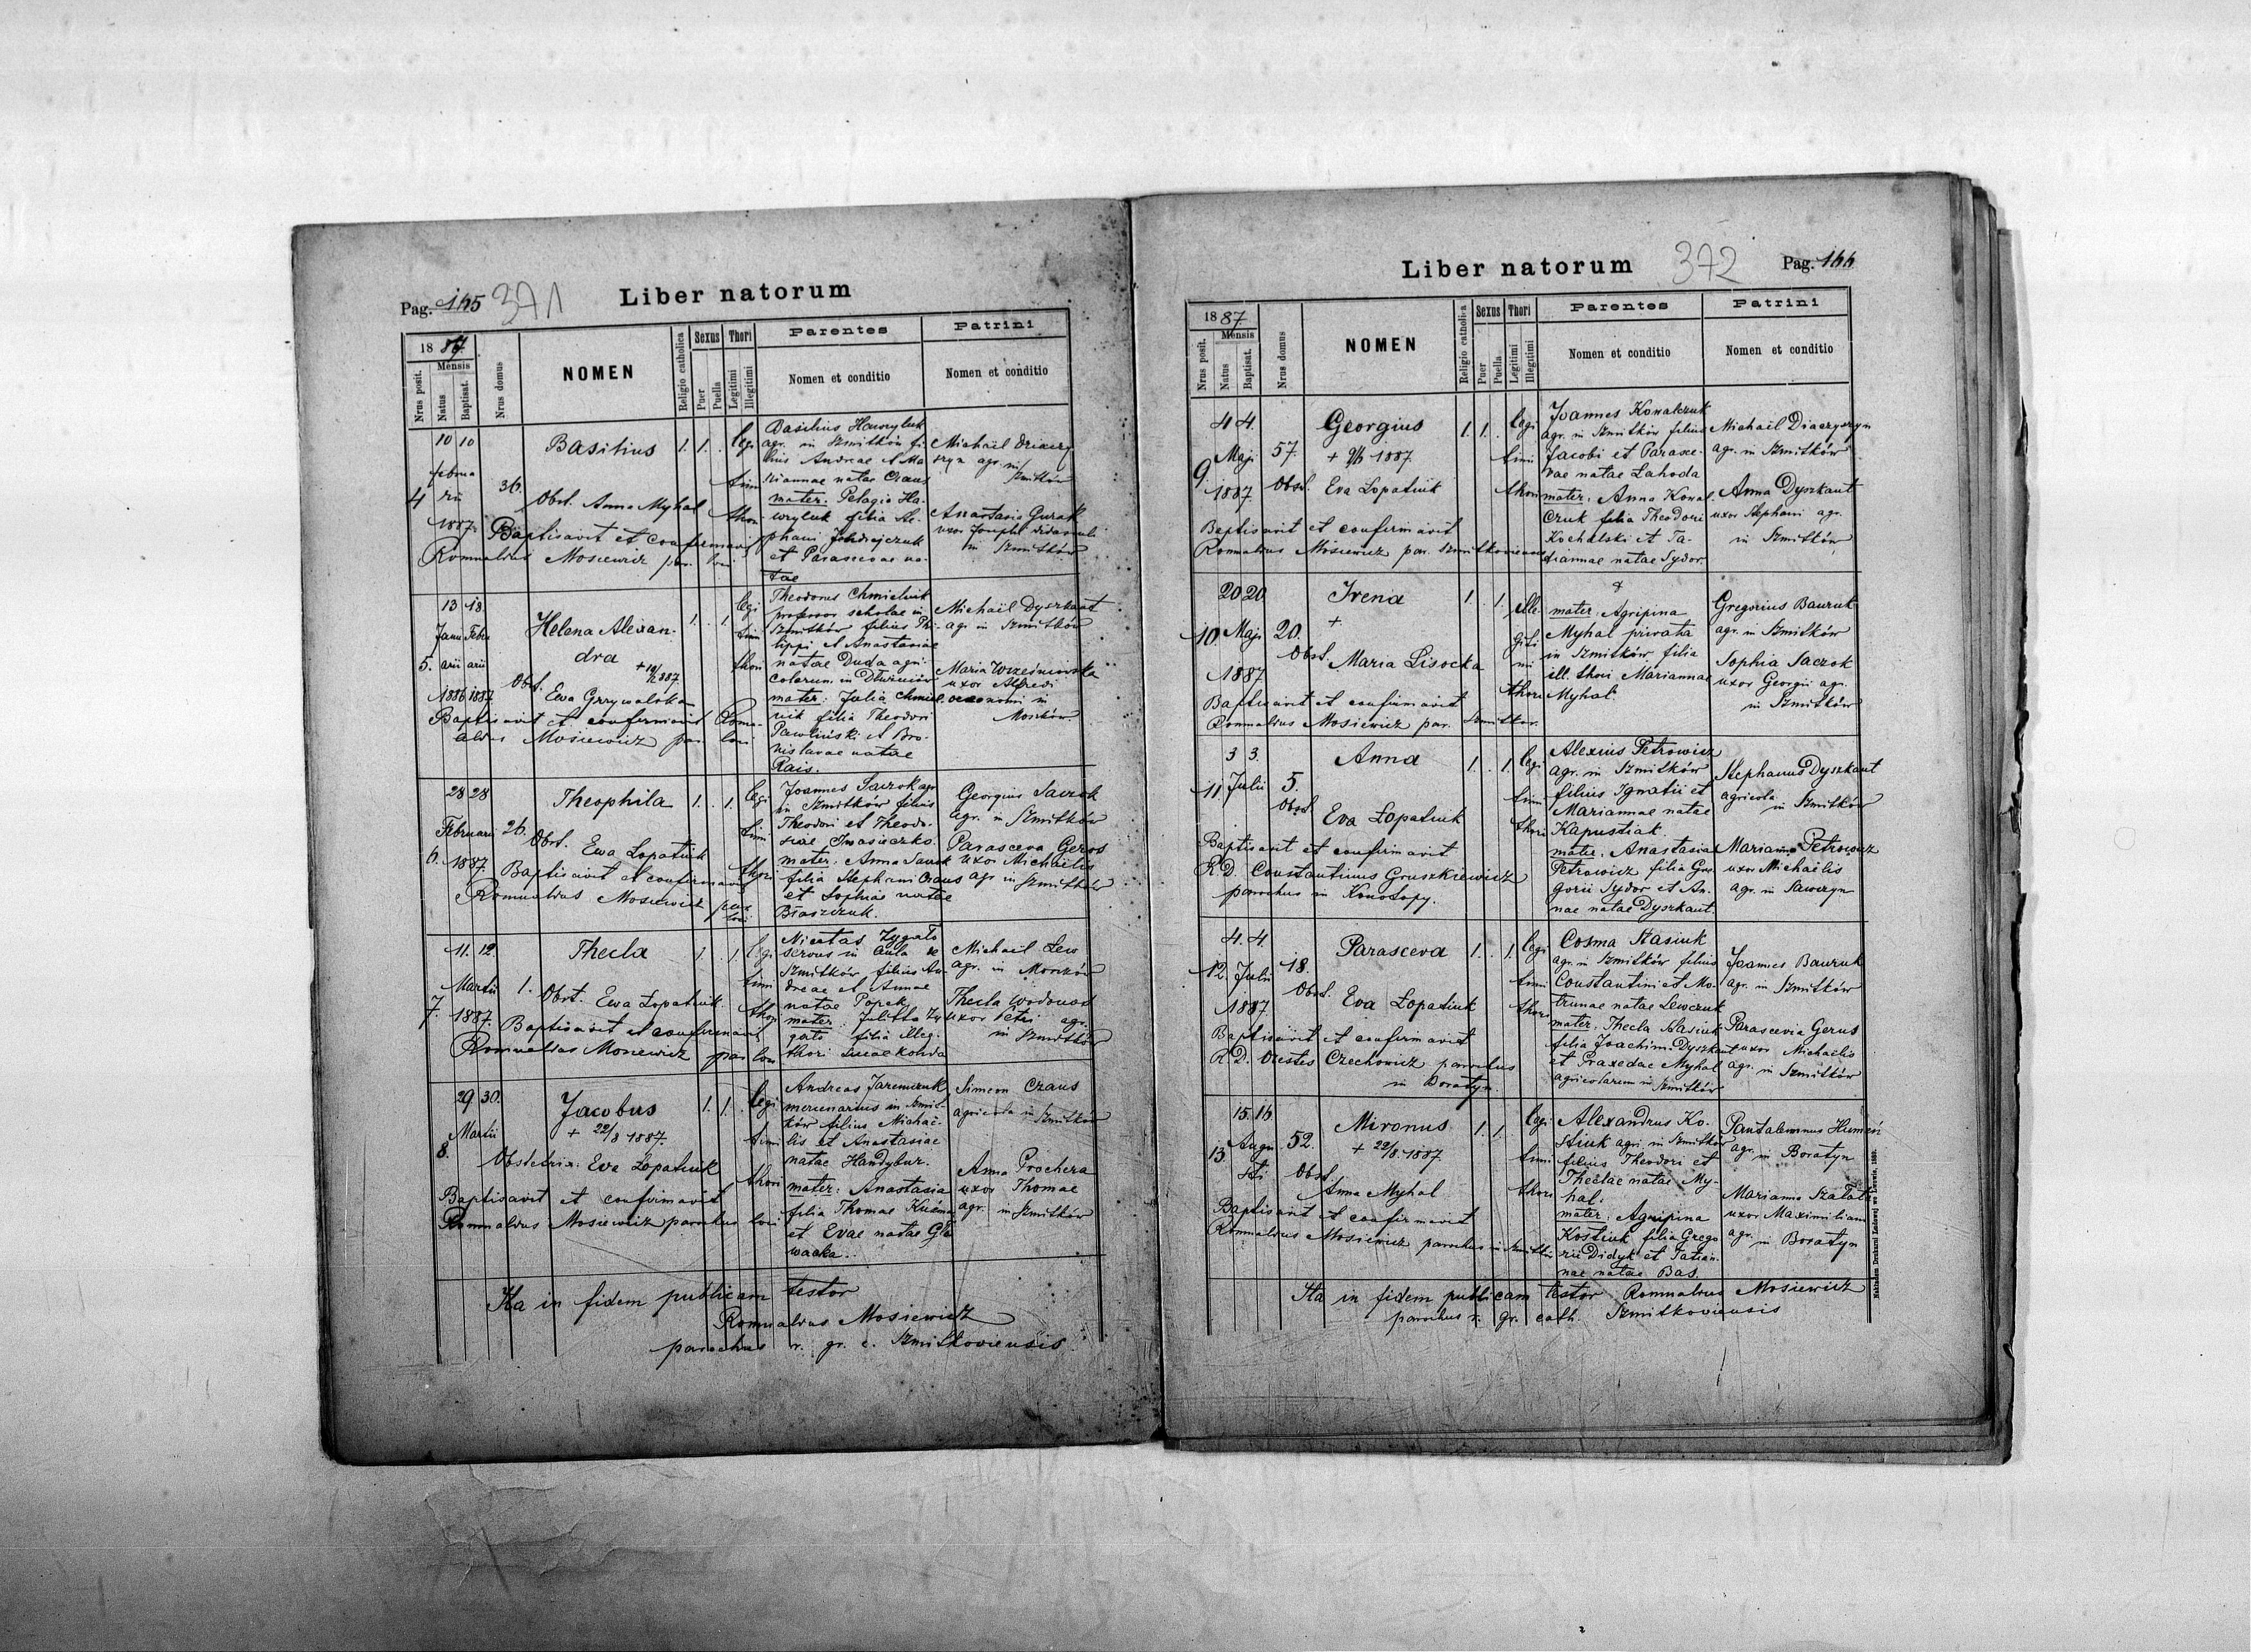 Pag. 165 371 Liber natorum
1887
Mensis
Nrus posit.
Natus
Baptisat.
Nrus domus
NOMEN
Religio catholica
Sexus
Puer
Puella
Thori
Legitimi
Illegitimi
Parentes
Nomen et conditio
Patrini
Nomen et conditio
4
10 10
februa
rii
1887.
36.
Basilius
Obst. Anna Myhal
Baptisavit et confirmavit
Romualdus Mosiewicz par. loci
1. 1.
legi
timi
thori
Basilius Hawryluk
agr. in Szmitków fi-
lius Andreae et Ma
riannae natae Craus
mater: Pelagia Ha-
wryluk filia Ste-
phani
et Parascevae na-
tae
Michaël
agr. in
Szmitków
Anastasia Gurak
uxor Josephi
in Szmitków
5.
13 18.
Janu Febru
arii arii
1886 1887
Helena Alexan-
dra
Obst.
Ewa Grzywalska
Baptisavit et confirmavit Romu-
aldus Mosiewicz par. loci
1. 1.
legi
timi
thori
Theodorus Chmieluk
professor scholae in
Szmitków filius Phi-
lippi et Anastasiae
natae Duda agri-
colarum in
mater: Julia
filia Theodori
Pawliński et Bro-
nislavae natae
Rais.
Michaël Dyszkant
agr. in Szmitków
Maria Wrześniowska
uxor Alfredi
oeconomi in
Moszków
6.
28 28
Februarii
1887.
26.
Theophila
Obst. Ewa Lopatiuk
Baptisavit et confirmavit
Romualdus Mosiewicz par.
loci
1. 1.
legi
timi
thori
Joannes Saczok agr.
in Szmitków filius
Theodori et Theodo-
siae
mater: Anna Saczok
filia Stephani Craus
et Sophiae natae
Błaszczuk.
Georgius Saczok
agr. in Szmitków
Parasceva Geros
uxor Michaëlis
agr. in Szmitków
7.
11. 12.
Martii
1887.
1.
Thecla
Obst. Ewa Lopatiuk
Baptisavit et confirmavit
Romualdus Mosiewicz par loci
1. 1.
legi
timi
thori
Nicetas Zygało
servus in aula
Szmitków filius An-
dreae et Annae
natae Popek
mater: Julitta Zy
gało filia illeg.
thori Lucae
Michaël Lew
agr. in Moszków
Thecla Wodonos
uxor Petri agr.
in Szmitków
8.
29 30.
Martii
Jacobus
+ 22/8 1887.
Obstetrix: Eva Lopatiuk
Baptisavit et confirmavit
Romualdus Mosiewicz parochus loci
1. 1.
legi
timi
thori
Andreas Jaremczuk
mercenarius in Szmit-
ków filius Michaë-
lis et Anastasiae
natae Handybur.
mater: Anastasia
filia Thomae
et Evae natae Gło
wacka.
Simeon Craus
agricola in Szmitków
Anna Prochera
uxor Thomae
agr. in Szmitków
Ita in fidem publicam testor
Romualdus Mosiewicz
parochus r. gr. c. Szmitkoviensis.
Liber natorum 372 Pag. 166
1887.
Mensis
Nrus posit.
Natus
Baptisat.
Nrus domus
NOMEN
Religio catholica
Sexus
Puer
Puella
Thori
Legitimi
Illegitimi
Parentes
Nomen et conditio
Patrini
Nomen et conditio
9.
4 4.
Maji
1887.
57.
Georgius
+ 9/6 1887.
Obst. Eva Lopatiuk
Baptisavit et confirmavit
Romualdus Mosiewicz par. Szmitkoviensis
1. 1.
legi
timi
thori
Joannes Kowalczuk
agr. in Szmitków filius
Jacobi et Parasce-
vae natae Lahoda
mater: Anna Kowal-
czuk filia Theodori
Kochalski et Ta-
tiannae natae Sydor.
Michaël Diaczyszyn
agr. in Szmitków
Anna Dyszkant
uxor Stephani agr.
in Szmitków
10.
20 20
Maji
1887
20.
Irena
+
Obst. Maria Lisocka
Baptisavit et confirmavit
Romualdus Mosiewicz par. Szmitkov.
1. 1.
ille
giti
mi
thori
mater: Agripina
Myhal privata
in Szmitków filia
ill. thori Mariannae
Myhal.
Gregorius Bauruk
agr. in Szmitków
Sophia Saczok
uxor Georgii agr.
in Szmitków
11.
3 3.
Julii
5.
Anna
Obst. Eva Lopatiuk
Baptisavit et confirmavit
R. D. Constantinus Gruszkiewicz
parochus in Konotopy.
1. 1.
legi
timi
thori
Alexius Petrowicz
agr. in Szmitków
filius Ignatii et
Mariannae natae
Kapustiak
mater: Anastasia
Petrowicz filia Gre-
gorii Sydor et An-
nae natae Dyszkant.
Stephanus Dyszkant
agricola in Szmitków
Marianna Petrowicz
uxor Michaëlis
agr. in Sawczyn
12.
4. 4.
Julii
1887.
18.
Parasceva
Obst. Eva Lopatiuk
Baptisavit et confirmavit
R. D. Orestes Czechowicz parochus
in Boratyn.
1. 1.
legi
timi
thori
Cosma Stasiuk
agr. in Szmitków filius
Constantini et Ma-
trunae natae Lewczuk
mater: Thecla Stasiuk
filia Joachimi Dyszkant
et Praxedae Myhal
agricolarum in Szmitków
Joannes Bauruk
agr. in Szmitków
Parascevia Gerus
uxor Michaëlis
agr. in Szmitków
13.
15. 16.
Augu
sti
52.
Mironus
+ 22/8. 1887.
Obst.
Anna Myhal
Baptisavit et confirmavit
Romualdus Mosiewicz parochus in Szmitków
1. 1.
legi
timi
thori
Alexandrus Ko-
stiuk agri. in Szmitków
filius Theodori et
Theclae natae My-
hal.
mater: Agripina
Kostiuk filia Grego
rii Didyk et Tatian-
nae natae Bas.
Pantaleminus Humeń
agr. in Boratyn
Marianna Szałat
uxor Maximiliani
agr. in Boratyn
Ita in fidem publicam testor Romualdus Mosiewicz
parochus r. gr. cath. Szmitkoviensis
Nakładem Drukarni Ludowej we Lwowie,